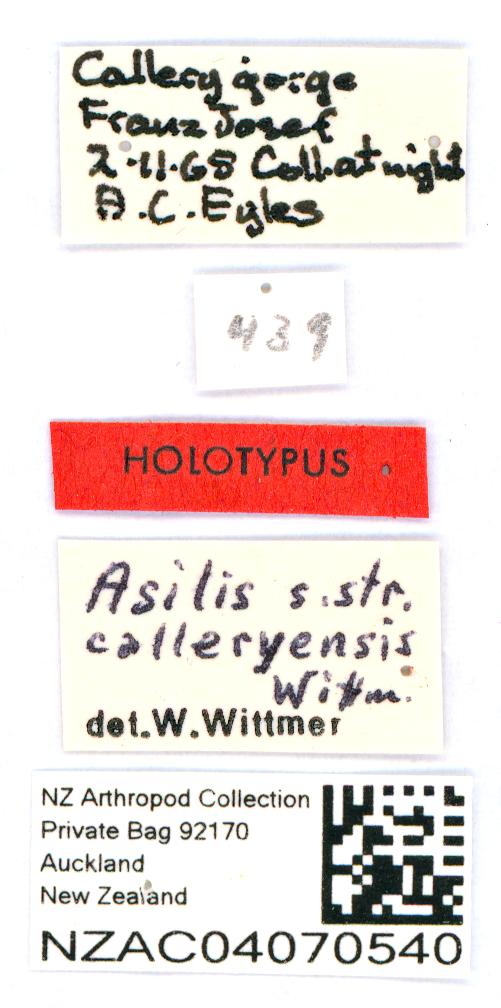 Callery gorge
Franz Josef
2.11.68 Coll.at night
A.C.Eyles
439
HOLOTYPUS
Asilis s.str.
calleryensis
Wittm.
det.W.Wittmer
NZ Arthropod Collection
Private Bag 92170
Auckland
New Zealand
NZAC04070540